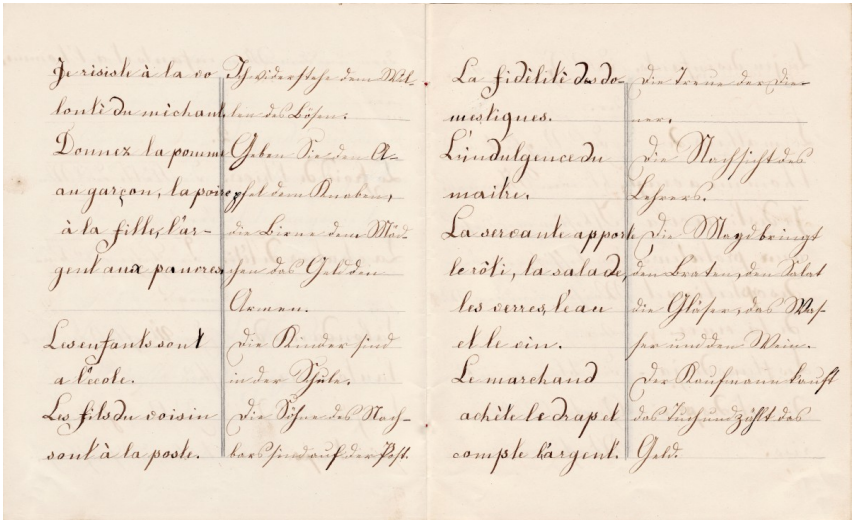 Je résiste à la vo
lonté du méchant.
Donnez la pomme
au garçon, la poire,
à la fille, l'ar-
gent aux pauvres.
Les enfants sont
a l'école.
Les fils du voisin
sont à la poste.
Ich widerstehe dem Wil-
len des Bösen.
Geben Sie den A-
pfel dem Knaben,
die Birne dem Mäd-
chen das Geld den
Armen.
Die Kinder sind
in der Schule.
Die Söhne des Nach-
bars sind auf der Post.
La fidélité des do-
mestiques.
L'indulgence du
maître.
La servante apporte
le rôti, la salade,
les verres, l'eau
et le vin.
Le marchand
achète le drap et
compte l'argent.
Die Treue der Die-
ner.
Die Nachsicht des
Lehrers.
Die Magd bringt
den Braten, den Salat
die Gläser, das Was-
ser und den Wein.
Der Kaufmann kauft
das Tuch und zählt das
Geld.